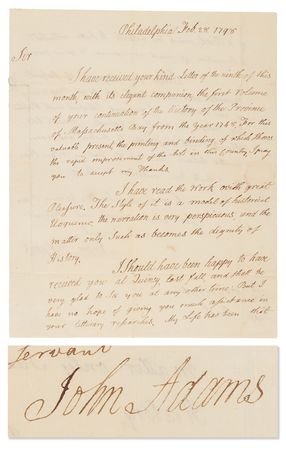 Philadelphia Feb. 28. 1798
Sir
I have received your kind Letter of the ninth of this
month, with its elegant companion, the first Volume
of your continuation of the History of the Province
of Massachusetts Bay, from the Year 1748. For this
valuable present, the printing and binding of which shows
the rapid improvement of the Arts in this Country, I pray
you to accept my Thanks.
I have read the Work with great
Pleasure. The Style of it is a model of historical
the narration is very perspicuous, and the
matter only Such as becomes the dignity of
History.
I Should have been happy to have
received you at Quincy last fall, and shall be
very glad to See you at any other time. But I
have no hope of giving you much assistance in
your literary researches. My Life has been that
Servant
John Adams